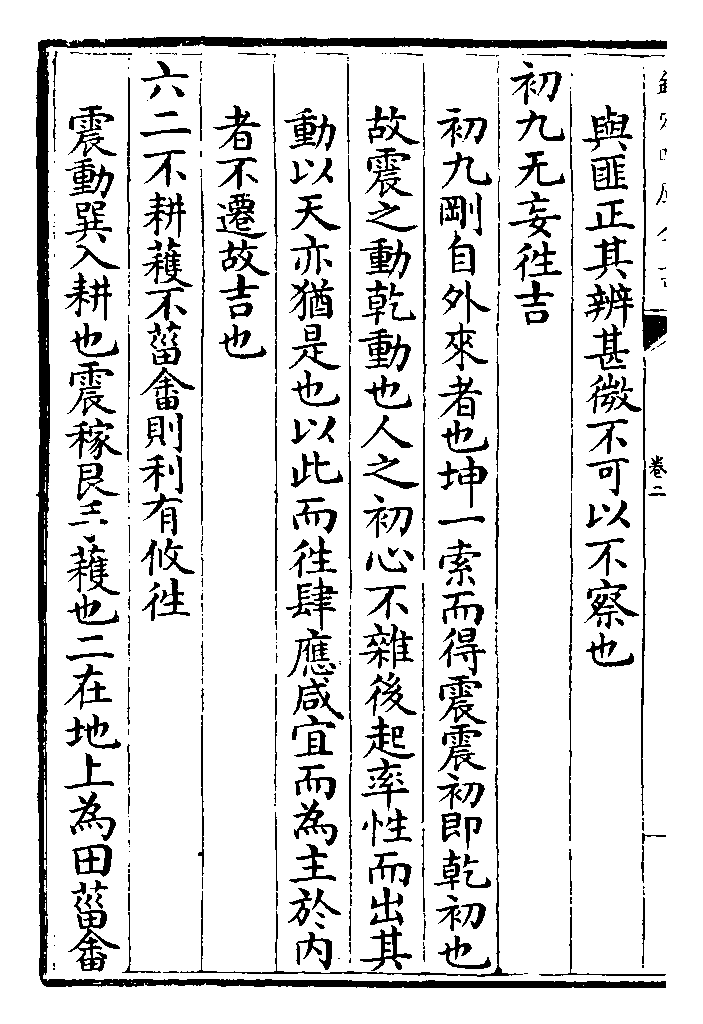 卷二
與匪正其辨甚微不可以不察也
初九无妄徃吉
初九剛自外來者也坤一索而得震震初即乾初也
故震之動乾動也人之初心不雜後起率性而出其
動以天亦猶是也以此而徃肆應咸宜而為主於内
者不遷故吉也
六二不耕穫不菑畬則利有攸徃
震動巽入耕也震稼艮手穫也二在地上為田菑畬